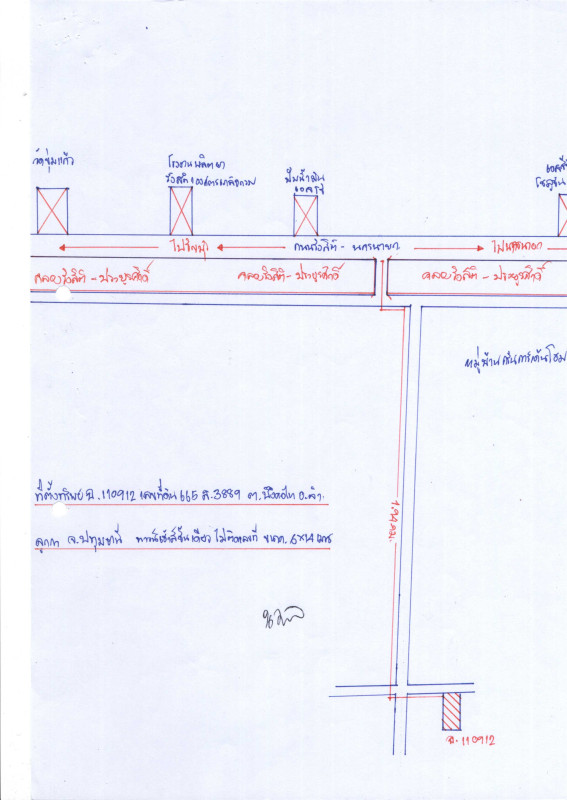 วัดชุ่มแก้ว
โรงงานผลิตยา
รังสิต องค์การเภสัชกรรม
ปั๊มน้ำมัน
ถนนรังสิต - นครนายก
ไปนครนายก
คลองรังสิต - ประยูรศักดิ์
คลองรังสิต - ประยูรศักดิ์
คลองรังสิต - ประยูรศักดิ์
ที่ตั้งทรัพย์ ฉ.110912 เลขที่ดิน 665 ส.3889 ต.บึงคอไห อ.ลำ-
ลูกกา จ.ปทุมธานี ทาวน์เฮ้าส์ชั้นเดียว ไม่ติดเลขที่ ขนาด
ฉ.110912